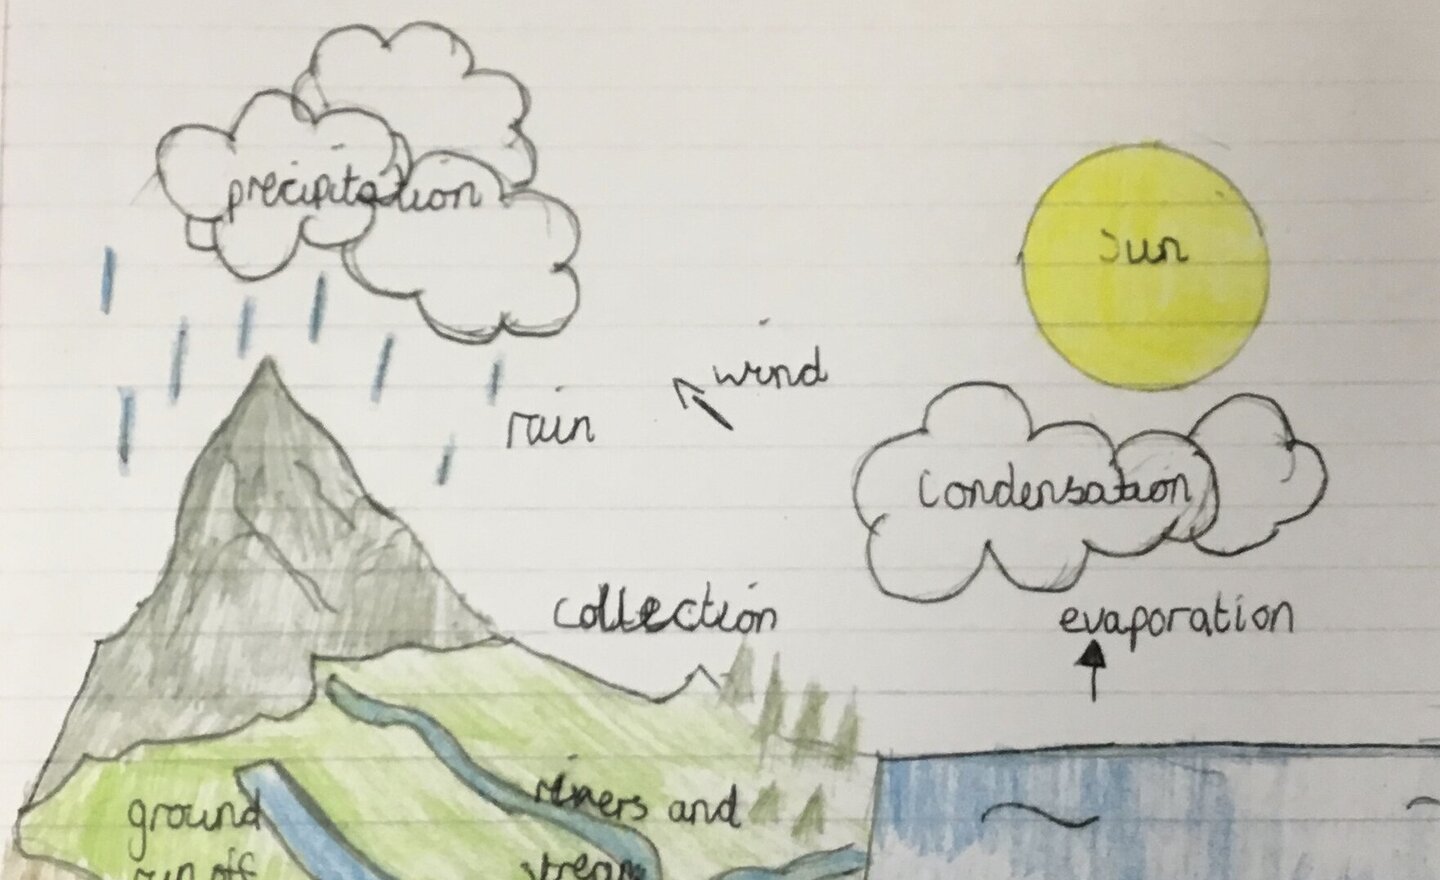 precipitation
sun
wind
rain
condensation
collection
evaporation
ground
run off
rivers and
streams